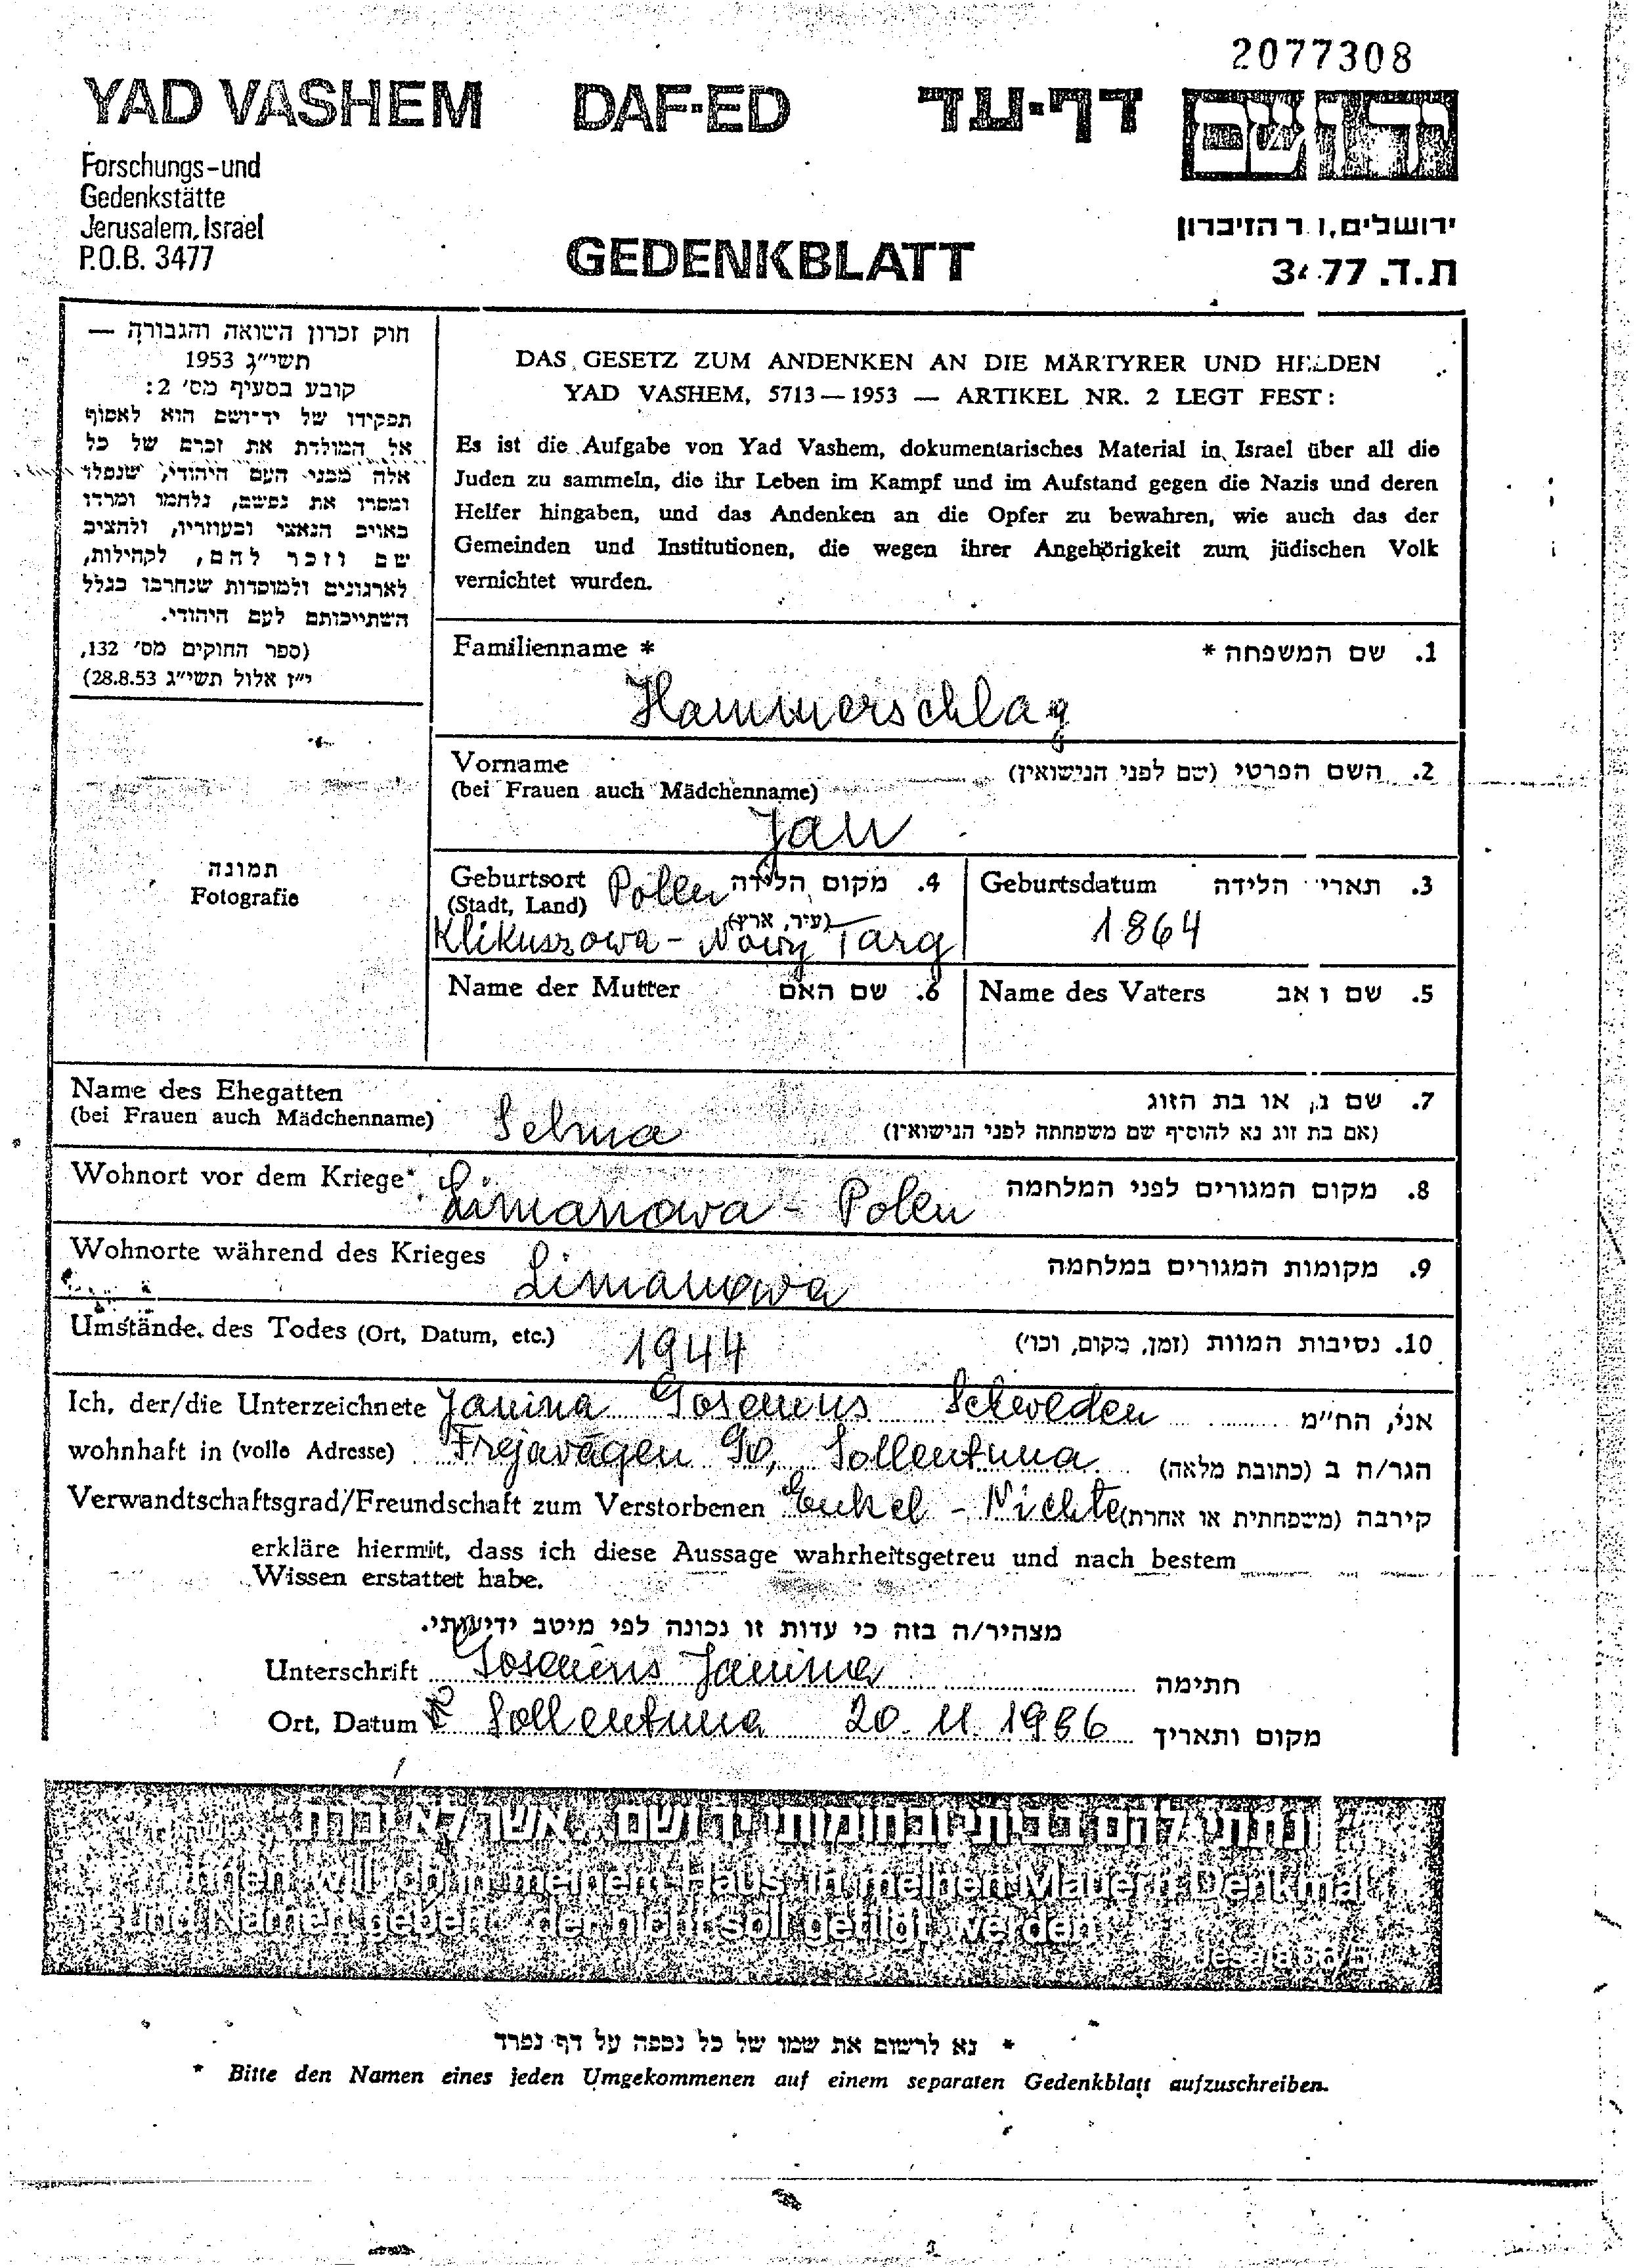 2077308
YAD VASHEM DAF-ED דף-עד
יד ושם
Forschungs-und
Gedenkstätte
Jerusalem, Israel
P.O.B. 3477
GEDENKBLATT
ירושלים, ר הזיכרון
ת.ד. 3477
חוק זכרון השואה והגבורה —
תשי״ג 1953
קובע בסעיף מס׳ 2:
תפקידו של יד־ושם הוא לאסוף
אל המולדת את זכרם של כל
אלה מבני העם היהודי, שנפלו
ומסרו את נפשם, נלחמו ומרדו
באויב הנאצי ובעוזריו, ולהציב
שם וזכר להם, לקהילות,
לארגונים ולמוסדות שנחרבו בגלל
השתייכותם לעם היהודי.
(ספר החוקים מס׳ 132,
י״ז אלול תשי״ג 28.8.53)
DAS GESETZ ZUM ANDENKEN AN DIE MÄRTYRER UND HELDEN
YAD VASHEM, 5713—1953 — ARTIKEL NR. 2 LEGT FEST:
Es ist die Aufgabe von Yad Vashem, dokumentarisches Material in Israel über all die
Juden zu sammeln, die ihr Leben im Kampf und im Aufstand gegen die Nazis und deren
Helfer hingaben, und das Andenken an die Opfer zu bewahren, wie auch das der
Gemeinden und Institutionen, die wegen ihrer Angehörigkeit zum jüdischen Volk
vernichtet wurden.
Familienname * 1. שם המשפחה *
Hammerschlag
Vorname 2. השם הפרטי (שם לפני הנישואין)
(bei Frauen auch Mädchenname)
Jan
תמונה
Fotografie
Geburtsort Polen 4. מקום הלידה
(Stadt, Land) (עיר, ארץ)
Klikuszowa - Nowy Targ
Geburtsdatum 3. תארי הלידה
1864
Name der Mutter 6. שם האם
Name des Vaters 5. שם ואב
Name des Ehegatten 7. שם או בת הזוג
(bei Frauen auch Mädchenname) Selma (אם בת זוג נא להוסיף שם משפחתה לפני הנישואין)
Wohnort vor dem Kriege* Limanowa - Polen 8. מקום המגורים לפני המלחמה
Wohnorte während des Krieges Limanowa 9. מקומות המגורים במלחמה
Umstände des Todes (Ort, Datum, etc.) 1944 10. נסיבות המוות (זמן, מקום, וכו׳)
Ich, der/die Unterzeichnete Janina Schweden אני, הח״מ
wohnhaft in (volle Adresse) Frejavägen 90, Sollentuna הגר/ה ב (כתובת מלאה)
Verwandtschaftsgrad/Freundschaft zum Verstorbenen Enkel - Nichte קירבה (משפחתית או אחרת)
erkläre hiermit, dass ich diese Aussage wahrheitsgetreu und nach bestem
Wissen erstattet habe.
מצהיר/ה בזה כי עדות זו נכונה לפי מיטב ידיעותי.
Unterschrift Janina חתימה
Ort, Datum Sollentuna 20. 11. 1986 מקום ותאריך
ונתתי להם בביתי ובחומותי יד ושם... אשר לא יכרת
ihnen will ich in meinem Haus, in meinen Mauern Denkmal
und Namen geben... der nicht soll getilgt werden
Jesaja 56/5
* נא לרשום את שמו של כל נספה על דף נפרד
* Bitte den Namen eines jeden Umgekommenen auf einem separaten Gedenkblatt aufzuschreiben.